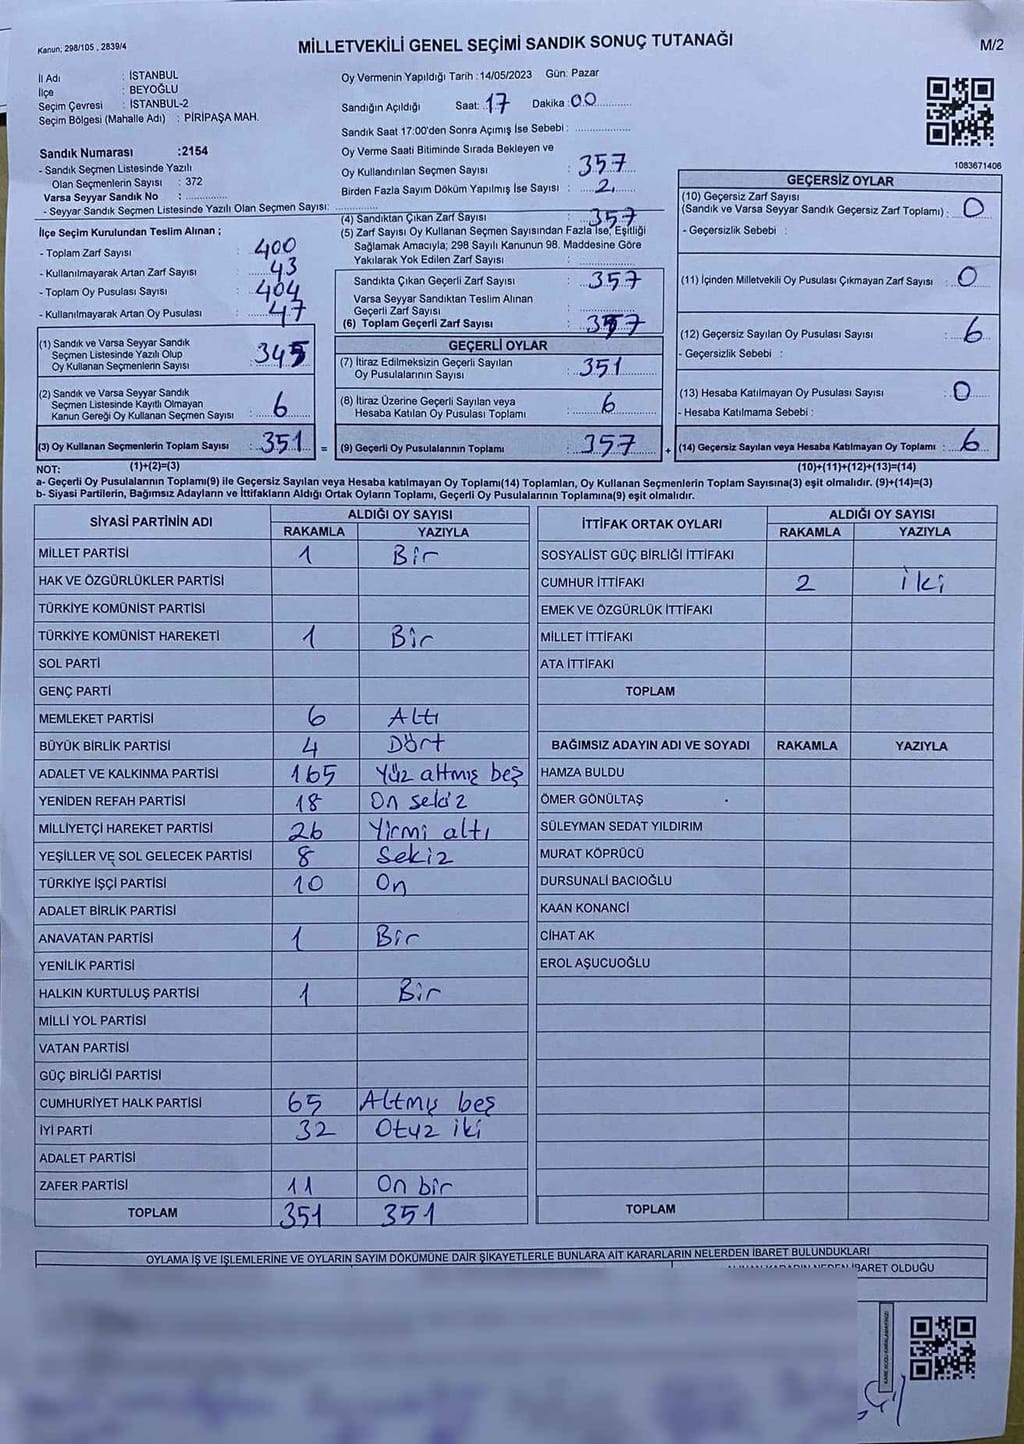 Kanun; 298/105 , 2839/4
MİLLETVEKİLİ GENEL SEÇİMİ SANDIK SONUÇ TUTANAĞI
M/2
İl Adı : İSTANBUL
İlçe : BEYOĞLU
Seçim Çevresi : İSTANBUL-2
Seçim Bölgesi (Mahalle Adı) : PİRİPAŞA MAH.
Sandık Numarası :2154
- Sandık Seçmen Listesinde Yazılı
Olan Seçmenlerin Sayısı : 372
Varsa Seyyar Sandık No :
- Seyyar Sandık Seçmen Listesinde Yazılı Olan Seçmen Sayısı:
İlçe Seçim Kurulundan Teslim Alınan ;
- Toplam Zarf Sayısı : 400
- Kullanılmayarak Artan Zarf Sayısı : 43
- Toplam Oy Pusulası Sayısı : 404
- Kullanılmayarak Artan Oy Pusulası : 47
(1) Sandık ve Varsa Seyyar Sandık
Seçmen Listesinde Yazılı Olup
Oy Kullanan Seçmenlerin Sayısı : 345
(2) Sandık ve Varsa Seyyar Sandık
Seçmen Listesinde Kayıtlı Olmayan
Kanun Gereği Oy Kullanan Seçmen Sayısı : 6
(3) Oy Kullanan Seçmenlerin Toplam Sayısı : 351
Oy Vermenin Yapıldığı Tarih : 14/05/2023 Gün: Pazar
Sandığın Açıldığı Saat: 17 Dakika : 00
Sandık Saat 17:00'den Sonra Açımış İse Sebebi :
Oy Verme Saati Bitiminde Sırada Bekleyen ve
Oy Kullandırılan Seçmen Sayısı : 357
Birden Fazla Sayım Döküm Yapılmış İse Sayısı : 2
(4) Sandıktan Çıkan Zarf Sayısı : 357
(5) Zarf Sayısı Oy Kullanan Seçmen Sayısından Fazla İse, Eşitliği
Sağlamak Amacıyla; 298 Sayılı Kanunun 98. Maddesine Göre
Yakılarak Yok Edilen Zarf Sayısı :
Sandıkta Çıkan Geçerli Zarf Sayısı : 357
Varsa Seyyar Sandıktan Teslim Alınan
Geçerli Zarf Sayısı :
(6) Toplam Geçerli Zarf Sayısı : 357
GEÇERLİ OYLAR
(7) İtiraz Edilmeksizin Geçerli Sayılan
Oy Pusulalarının Sayısı : 351
(8) İtiraz Üzerine Geçerli Sayılan veya
Hesaba Katılan Oy Pusulası Toplamı : 6
= (9) Geçerli Oy Pusulalarının Toplamı : 357
1083671406
GEÇERSİZ OYLAR
(10) Geçersiz Zarf Sayısı
(Sandık ve Varsa Seyyar Sandık Geçersiz Zarf Toplamı) : 0
- Geçersizlik Sebebi :
(11) İçinden Milletvekili Oy Pusulası Çıkmayan Zarf Sayısı : 0
(12) Geçersiz Sayılan Oy Pusulası Sayısı : 6
- Geçersizlik Sebebi :
(13) Hesaba Katılmayan Oy Pusulası Sayısı : 0
- Hesaba Katılmama Sebebi :
+ (14) Geçersiz Sayılan veya Hesaba Katılmayan Oy Toplamı : 6
NOT: (1)+(2)=(3) (10)+(11)+(12)+(13)=(14)
a- Geçerli Oy Pusulalarının Toplamı(9) ile Geçersiz Sayılan veya Hesaba katılmayan Oy Toplamı(14) Toplamları, Oy Kullanan Seçmenlerin Toplam Sayısına(3) eşit olmalıdır. (9)+(14)=(3)
b- Siyasi Partilerin, Bağımsız Adayların ve İttifakların Aldığı Ortak Oyların Toplamı, Geçerli Oy Pusulalarının Toplamına(9) eşit olmalıdır.
SİYASİ PARTİNİN ADI ALDIĞI OY SAYISI
RAKAMLA YAZIYLA
MİLLET PARTİSİ 1 Bir
HAK VE ÖZGÜRLÜKLER PARTİSİ
TÜRKİYE KOMÜNİST PARTİSİ
TÜRKİYE KOMÜNİST HAREKETİ 1 Bir
SOL PARTİ
GENÇ PARTİ
MEMLEKET PARTİSİ 6 Altı
BÜYÜK BİRLİK PARTİSİ 4 Dört
ADALET VE KALKINMA PARTİSİ 165 Yüz altmış beş
YENİDEN REFAH PARTİSİ 18 On sekiz
MİLLİYETÇİ HAREKET PARTİSİ 26 Yirmi altı
YEŞİLLER VE SOL GELECEK PARTİSİ 8 Sekiz
TÜRKİYE İŞÇİ PARTİSİ 10 On
ADALET BİRLİK PARTİSİ
ANAVATAN PARTİSİ 1 Bir
YENİLİK PARTİSİ
HALKIN KURTULUŞ PARTİSİ 1 Bir
MİLLİ YOL PARTİSİ
VATAN PARTİSİ
GÜÇ BİRLİĞİ PARTİSİ
CUMHURİYET HALK PARTİSİ 65 Altmış beş
İYİ PARTİ 32 Otuz iki
ADALET PARTİSİ
ZAFER PARTİSİ 11 On bir
TOPLAM 351 351
İTTİFAK ORTAK OYLARI ALDIĞI OY SAYISI
RAKAMLA YAZIYLA
SOSYALİST GÜÇ BİRLİĞİ İTTİFAKI
CUMHUR İTTİFAKI 2 iki
EMEK VE ÖZGÜRLÜK İTTİFAKI
MİLLET İTTİFAKI
ATA İTTİFAKI
TOPLAM
BAĞIMSIZ ADAYIN ADI VE SOYADI RAKAMLA YAZIYLA
HAMZA BULDU
ÖMER GÖNÜLTAŞ
SÜLEYMAN SEDAT YILDIRIM
MURAT KÖPRÜCÜ
DURSUNALİ BACIOĞLU
KAAN KONANCİ
CİHAT AK
EROL AŞUCUOĞLU
TOPLAM
OYLAMA İŞ VE İŞLEMLERİNE VE OYLARIN SAYIM DÖKÜMÜNE DAİR ŞİKAYETLERLE BUNLARA AİT KARARLARIN NELERDEN İBARET BULUNDUKLARI
İBARET OLDUĞU